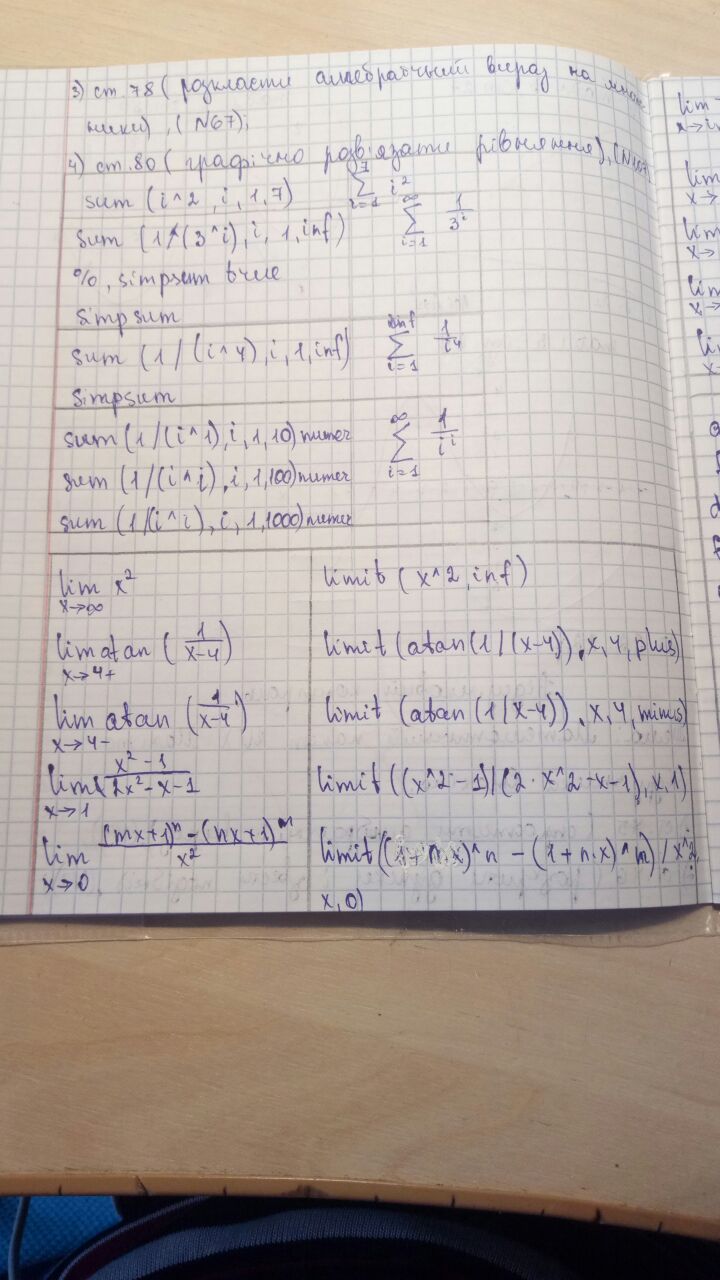 3) ст. 78 ( розкласти алгебраїчний вираз на множ
ники), (N67);
4) ст. 80 ( графічно розв'язати рівняння), (N107)
sum (i^2, i, 1, 7) ∑ i=1 7 i²
sum (1/(3^i), i, 1, inf) ∑ i=1 ∞ 1/3^i
%, simpsum true
simpsum
sum (1/(i^4), i, 1, inf) ∑ i=1 inf 1/i⁴
simpsum
sum (1/(i^1), i, 1, 10) numer ∑ i=1 ∞ 1/i^i
sum (1/(i^i), i, 1, 100) numer
sum (1/(i^i), i, 1, 1000) numer
lim x→∞ x² limit (x^2, inf)
lim x→4+ atan (1/(x-4)) limit (atan (1/(x-4)), x, 4, plus)
lim x→4- atan (1/(x-4)) limit (atan (1/x-4)), x, 4, minus)
lim x→1 (x²-1)/(2x²-x-1) limit ((x^2-1)/(2·x^2-x-1), x, 1)
lim x→0 ((mx+1)^n-(nx+1)^m)/x² limit ((1+n·x)^n - (1+n·x)^m) / x^2,
x, 0)
lim
x→in
lim
x→
lim
x→
lim
x→
x→